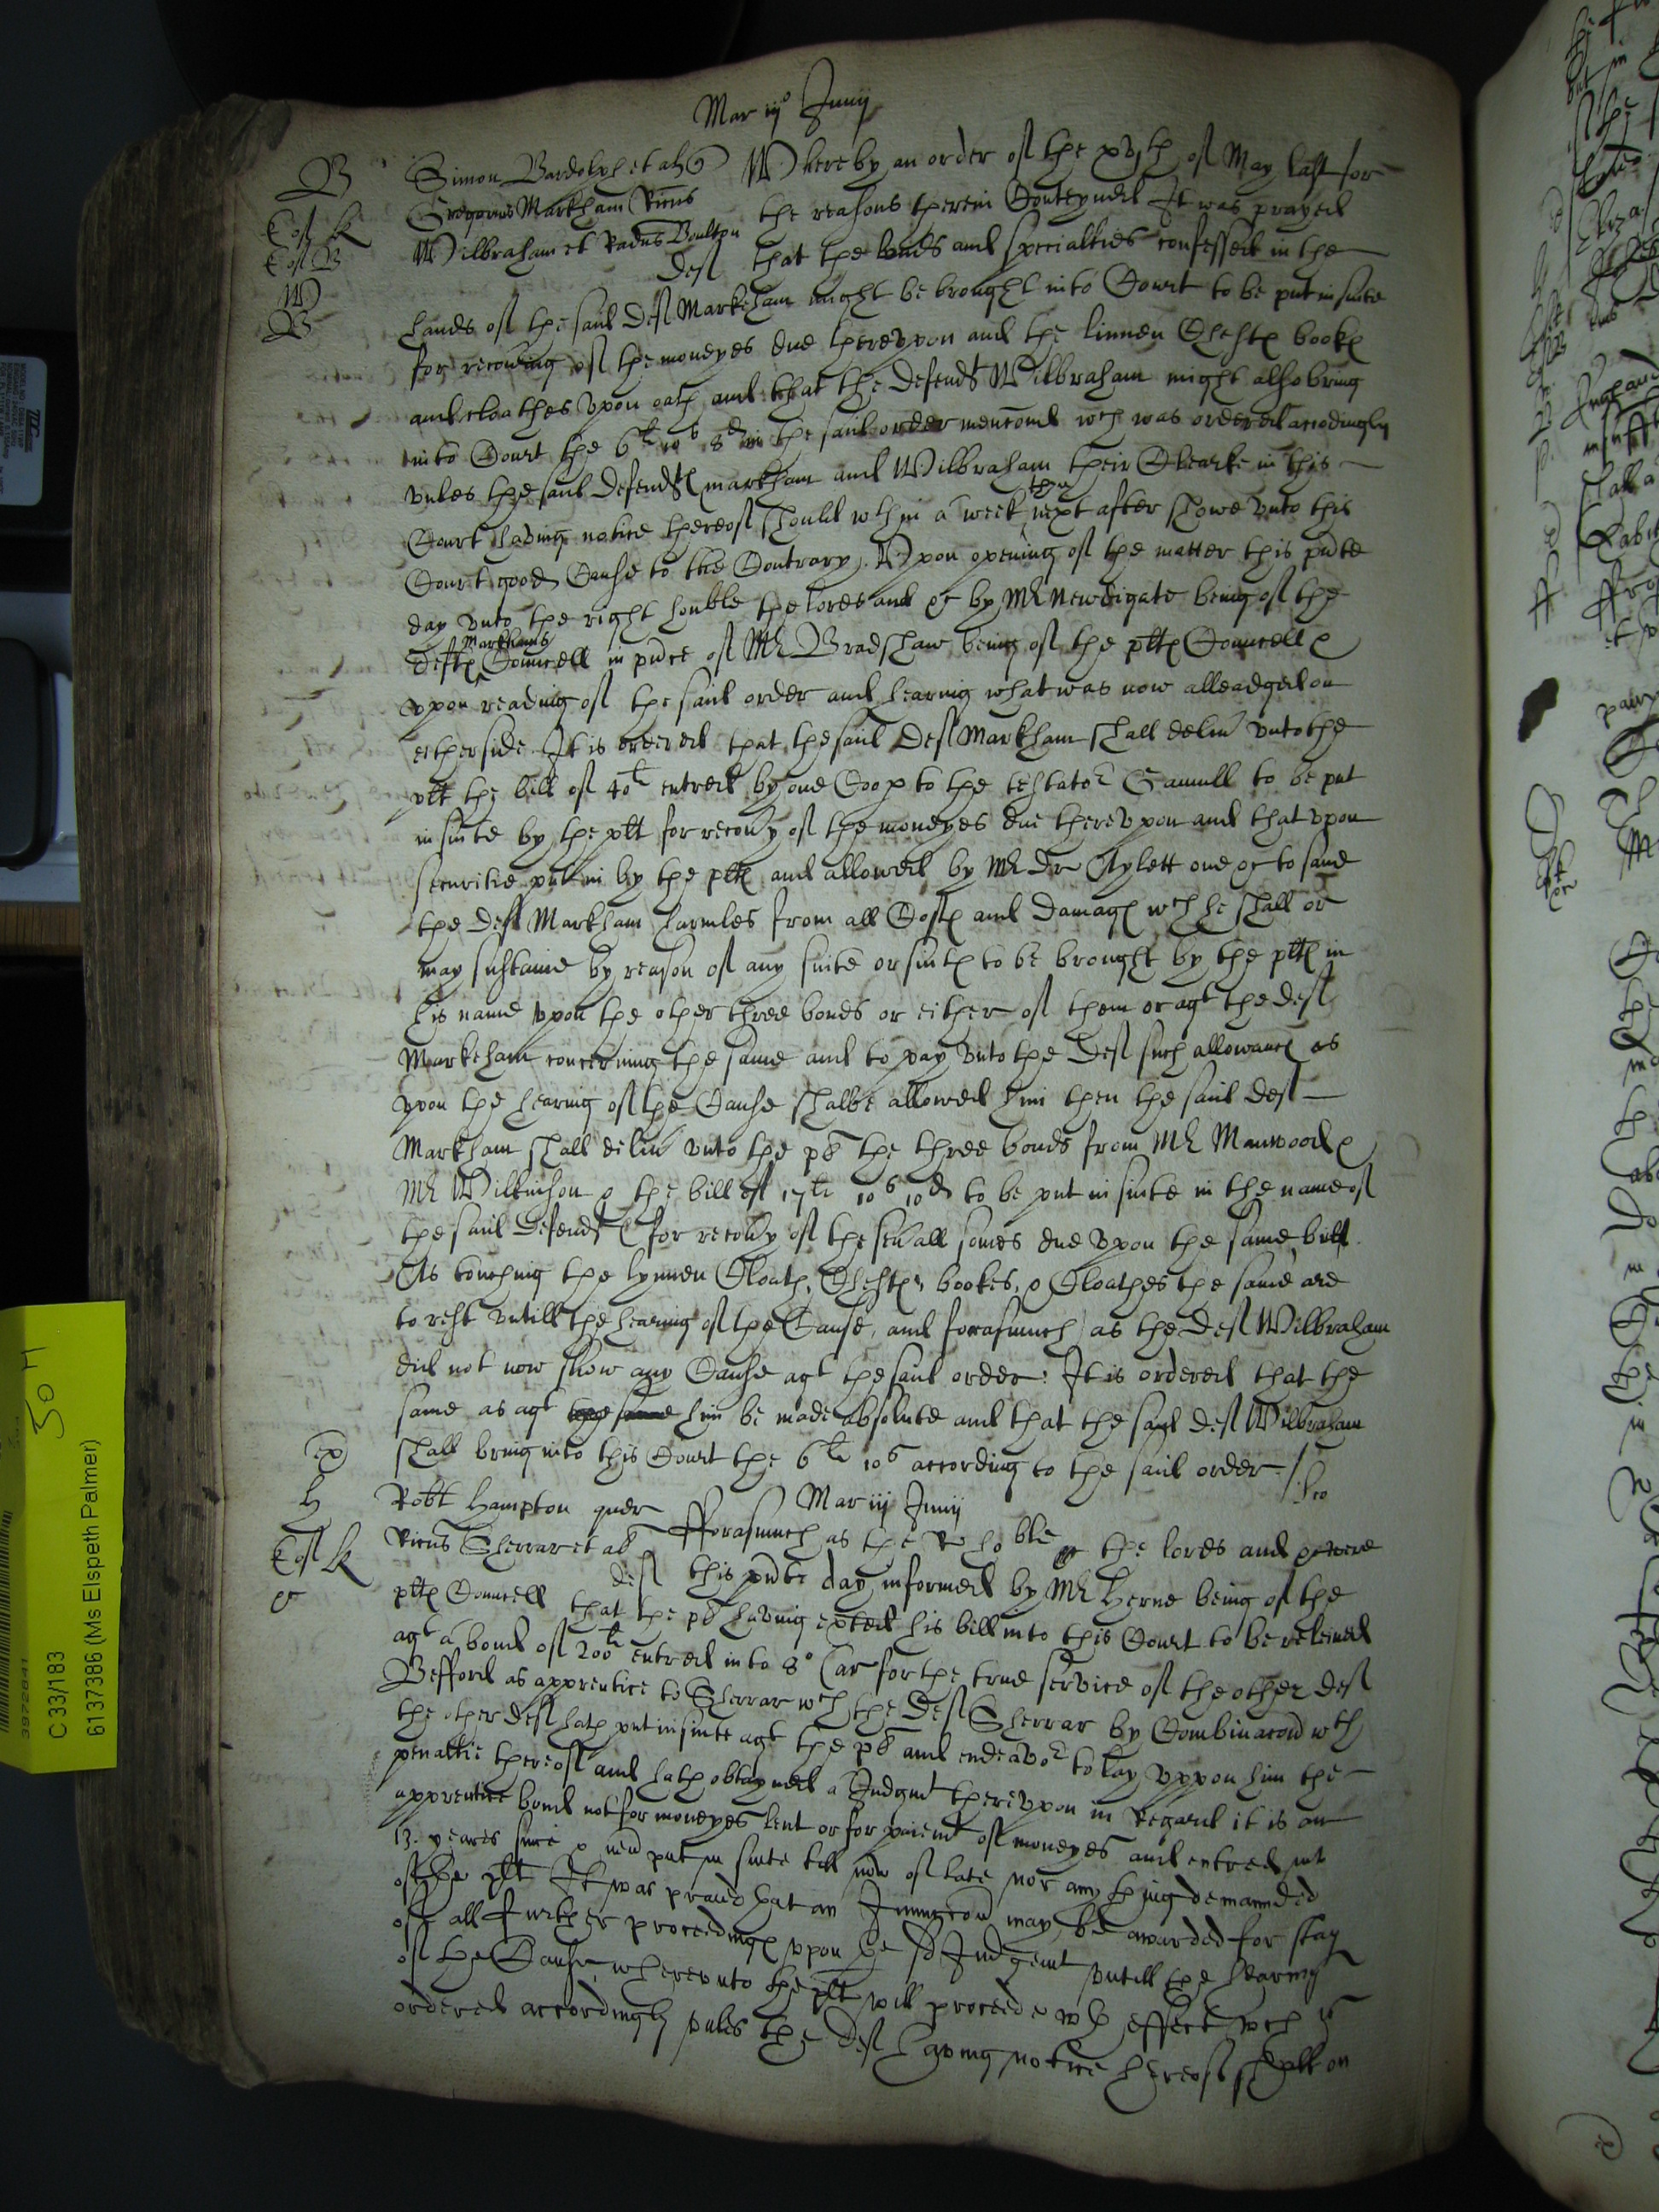 Mar iijº Junij
B
Simon Bardolph et al Quer
Wherby an order of the xvjth of May last for
Gregorius Markham Ricus
the reasons therein Conteyned It was prayed
Wilbraham et Radus Boulton
Def that the bonds and specialties confessed in the
hands of the said Def Markeham might be brought into Court to be put in suite
for recoûing of the moneyes due therevpon and the linnen Chests bookes
and cloathes vpon oath and that the Defendt Wilbraham might also bring
into Court the 6li 10s 8d in the said order mencond wch was ordered accordingly
vnles the said Defendts markham and Wilbraham their Clearke in this
Court having notice thereof should wthin a week then next after showe vnto this
Court good Cause to the Contrary. Vpon opening of the matter this pñte
day vnto the right honble the lordes and &c by Mr Newdigate being of the
Defts Markhams Councell in pñce of Mr Bradshaw being of the plts Councell &
vpon reading of the said order and hearing what was now alleadged on
either side It is ordered that the said Def Markham shall deliû vnto the
plt the bill of 40li entred by one Coop to the testator Gamull to be put
in suite by the plt for recoûy of the moneyes due therevpon and that vpon
securitie put in by the plts and allowed by Mr Dr Aylett one &c to saue
the Def Markham harmles from all Costs and Damages wch he shall or
may sustaine by reason of any suite or suits to be brought by the plts in
his name vpon the other three bonds or either of them or agt the def
Markeham concerning the same and to pay vnto the Def such allowance as
vpon the hearing of the Cause shalbe allowed him then the said def
Markham shall deliû vnto the plt the three bonds from Mr Manwood &
Mr Wilkinson & the bill of 17li 10s 10d to be put in suite in the name of
the said Defendt for recoûy of the seûall somes due vpon the same bill.
As touching the lynnen Cloath, Chests, bookes, & Cloathes the same are
to rest vntill the hearing of the Cause, and forasmuch as the Def Wilbraham
did not now show any Cause agt the said order: It is ordered that the
same as agt the same him be made absolute and that the said def Wilbraham
shall bring into this Court the 6li 10s according to the said order /
Mar iij Junij
H
Robt Hampton quer
fforasmuch as the R hoble the lordes and &c were
Ricus Sherrar et al
def this pñte day informed by Mr Herne being of the
plts Councell that the plt having exhted his bill into this Court to be releived
agt a bond of 200li entred into 8º Car for the true service of the other def
Befford as apprentice to Sherrar wch the Def Sherrar by Combinacon wth
the other def hath put in suite agt the plt and endeavor to lay vppon him the
penaltie thereof and hath obtayned a Judgmt therevpon in Regard it is an
apprentice bond not for moneyes lent or for paiemt of moneyes and entred into
13. yeares since & neû put in suite till now of late nor any thing demannded
of the plt It was praied that an Iniunccon may be awarded for stay
of all further proceedings vpon the sd Judgemt vntill the hearing
of the Cause, wherevnto the plt will proceede wth effect wch is
ordered accordingly vnles the Def having notice hereof shall on
C 33/183
6137386 (Ms Elspeth Palmer)
3972841